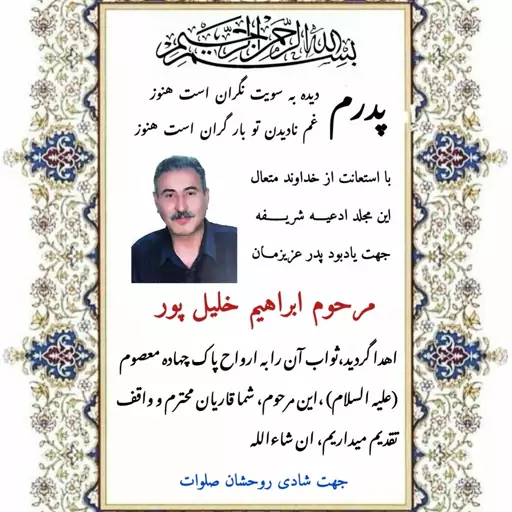 بسم الله الرحمن الرحیم
دیده به سویت نگران است هنوز
پدرم
غم نادیدن تو بار گران است هنوز
با استعانت از خداوند متعال
این مجلد ادعیـه شریـفه
جهت یادبود پدر عزیزمـان
مرحوم ابراهیم خلیل پور
اهدا گردید،ثواب آن را به ارواح پاک چهاده معصوم
(علیه السلام) ،این مرحوم، شما قاریان محترم و واقف
تقدیم میداریم، ان شاءالله
جهت شادی روحشان صلوات